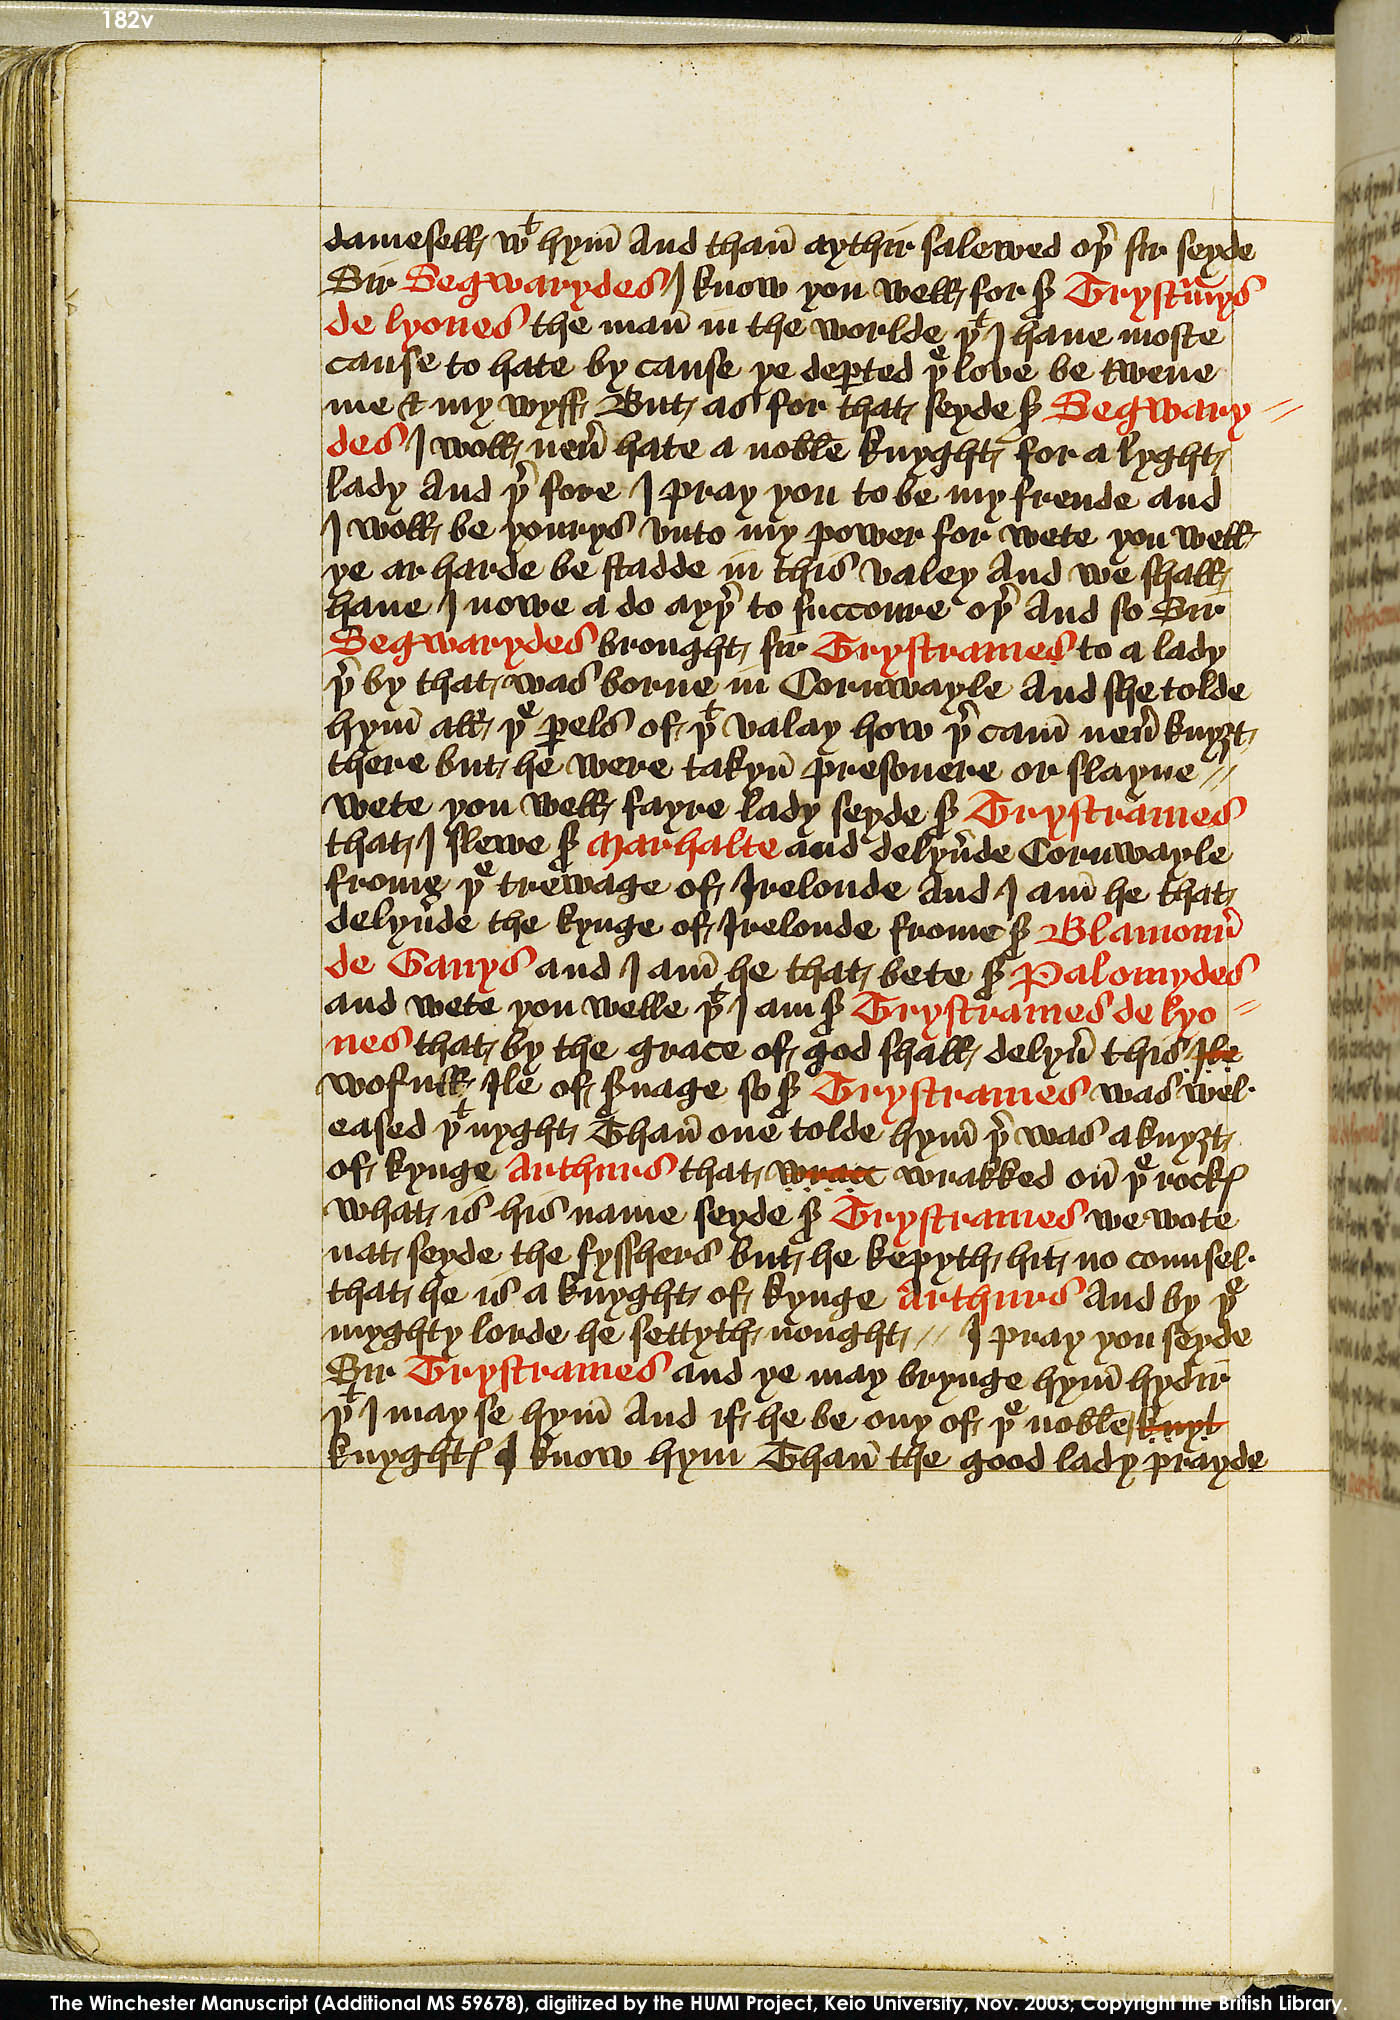 182v
damesell wᵗ hym̄ And than̄ aythir salewed oþ̛ sir seyde
Sir Segwarydes I know you well for sꝛ Trystrāmys
de lyones the man̄ in the worlde þᵗ I haue moste
cause to hate by cause ye deꝑted þᵉ love be twene
me & my wyff But as for that seyde sꝛ Segwary //
des I woll neư hate a noble knyght for a lyght
lady And þ̛ fore I pray you to be my frende and
I woll be yourys vnto my power for wete you well
ye ar harde be stadde in this valey And we shall
haue I nowe a do ayþ̛ to succoure oþ̛ And so Sir
Segwarydes brought sir Trystrames to a lady
þ̛ by that was borne in Cornwayle And she tolde
hym̄ all þᵉ ꝑels of þᵗ valay how þ̛ cam̄ neư knyȝt
there but he were takyn̄ presonere or slayne //
wete you well fayre lady seyde sꝛ Trystrames
that I slewe sꝛ Marhalte and delyưde Cornwayle
frome þᵉ trewage of Irelonde And I am̄ he that
delyưde the kynge of Irelonde frome sꝛ Blamour̛
de Ganys and I am̄ he that bete sꝛ Palomydes
and wete you welle þᵗ I am sꝛ Trystrames de lyo //
nes that by the grace of god shall delyư this Ile
wofull Ile of s̛uage so sꝛ Trystrames was wel
eased þᵗ nyght Than̄ one tolde hym̄ þ̛ was a knyȝt
of kynge Arthurs that wrac wrakked on̄ þᵉ rockꝭ
what is his name seyde sꝛ Trystrames we wote
nat seyde the fysshers but he kepyth hit no counsel
that he is a knyght of kynge Arthurs And by þᵉ
myghty lorde he settyth nought // I pray you seyde
Sir Trystrames and ye may brynge hym̄ hydir
þᵗ I may se hym̄ And if he be ony of þᵉ noble knyt
knyghtꝭ I know hym Than̄ the good lady prayde
The Winchester Manuscript (Additional MS 59678), digitized by the HUMI Project, Keio University, Nov. 2003; Copyright the British Library.